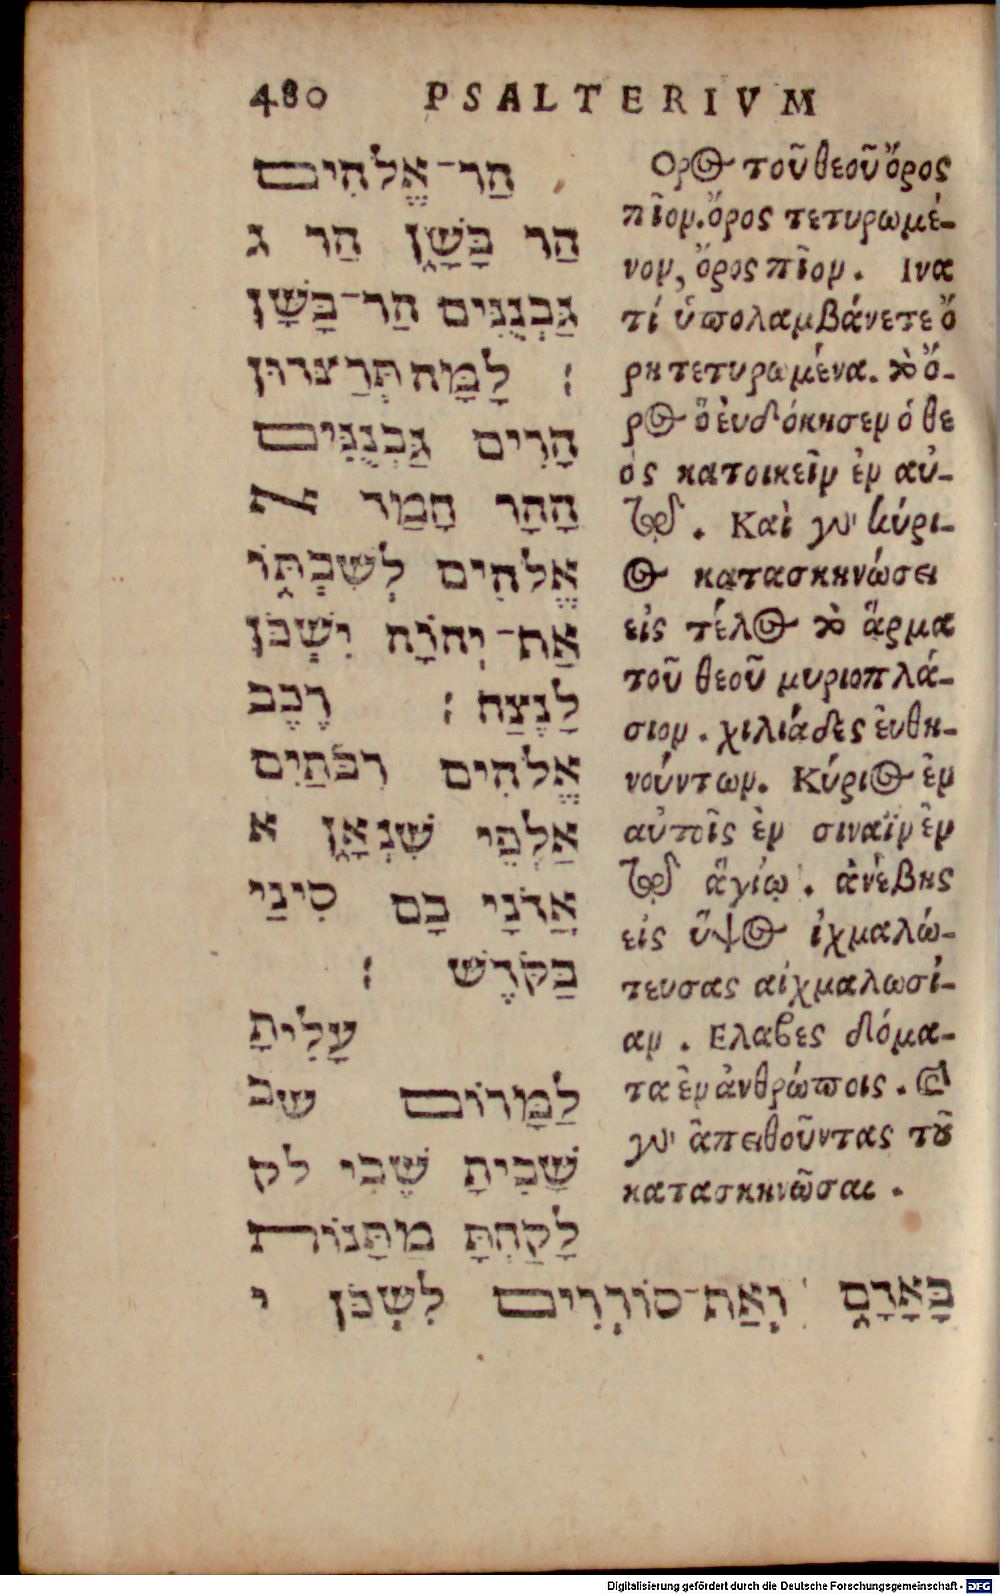 480 PSALTERIVM
הַר־אֱלֹהִים
הַר בָּשָׁן הַר ג
גַּבְנֻנִּים הַר־בָּשָׁן
׃ לָמָּה תְּרַצְּדוּן
הָרִים גַּבְנֻנִּים
הָהָר חָמַד א
אֱלֹהִים לְשִׁבְתּוֹ
אַף־יְהוָה יִשְׁכֹּן
לָנֶצַח ׃ רֶכֶב
אֱלֹהִים רִבֹּתַיִם
אַלְפֵי שִׁנְאָן א
אֲדֹנָי בָם סִינַי
בַּקֹּדֶשׁ ׃
עָלִיתָ
לַמָּרוֹם שב
שָׁבִיתָ שֶׁבִי לק
לָקַחְתָּ מַתָּנוֹת
בָּאָדָם וְאַף־סוֹרְרִים לִשְׁכֹּן י
Ορος τοῦ θεοῦ ὄρος
πῖον. ὄρος τετυρωμέ-
νον, ὄρος πῖον. Ινα
τί ὑπολαμβάνετε ὄ
ρη τετυρωμένα. τὸ ὄ-
ρος ὃ ἐυδόκησεν ὁ θε
ὸς κατοικεῖν ἐν αὐ-
τῷ. Καὶ γὰρ κύρι-
ος κατασκηνώσει
εἰς τέλος τὸ ἅρμα
τοῦ θεοῦ μυριοπλά-
σιον. χιλιάδες ἐυθη-
νούντων. Κύριος ἐν
αὐτοῖς ἐν σιναῒ ἐν
τῷ ἁγίῳ. ἀνέβης
εἰς ὕψος ἰχμαλώ-
τευσας αἰχμαλωσί-
αν. Ελαβες δόμα-
τα ἐν ἀνθρώποις. καὶ
γὰρ ἀπειθοῦντας τοῦ
κατασκηνῶσαι.
Digitalisierung gefördert durch die Deutsche Forschungsgemeinschaft - DFG